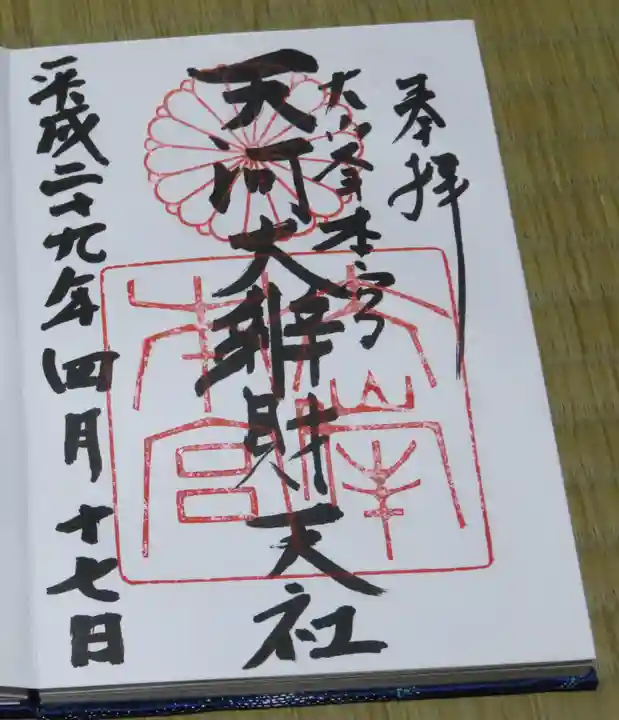 奉拝
大峯本宮
天河大辨財天社
平成二十九年四月十七日
大峯本宮